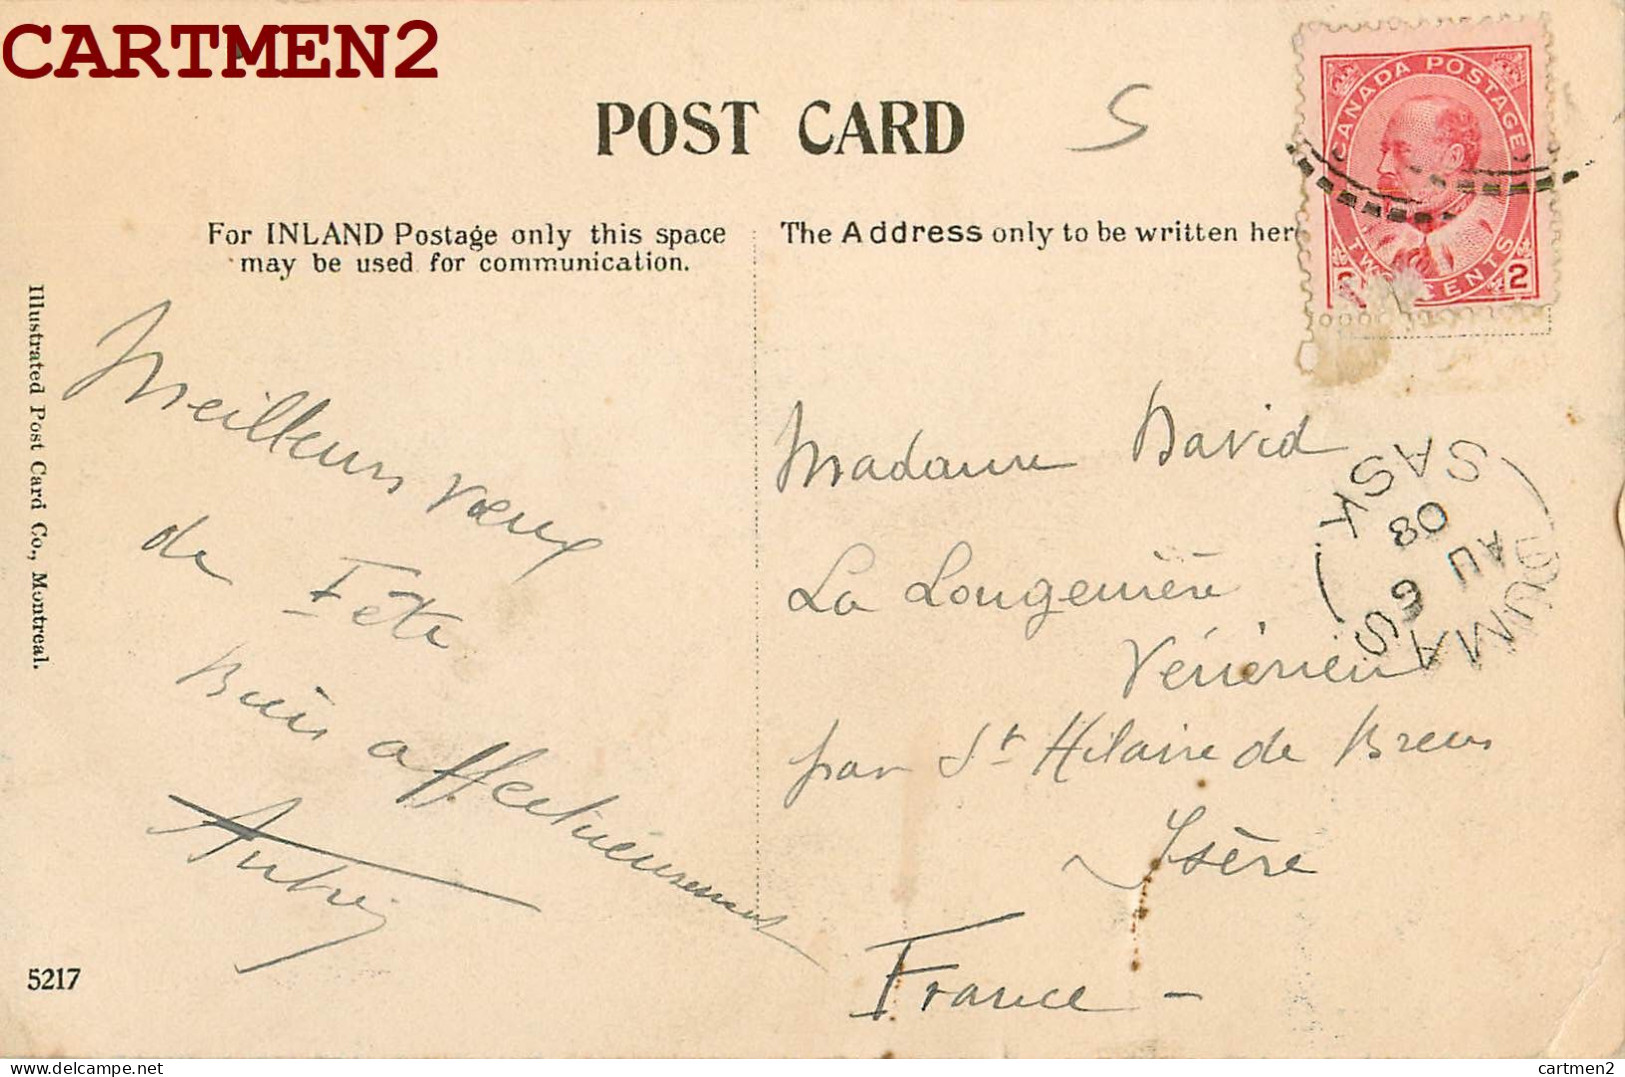 CARTMEN2
POST CARD
S
CANADA POSTAGE
TWO CENTS
2
For INLAND Postage only this space
may be used for communication.
The Address only to be written her
Illustrated Post Card Co., Montreal.
Meilleurs vœux
de Fête
Bien affectueusement
Madame David
La Longenière
Vénérieu
par St Hilaire de Brens
Isère
France -
DUMAS
SASK
AU 6
08
5217
cartmen2
cartmen2